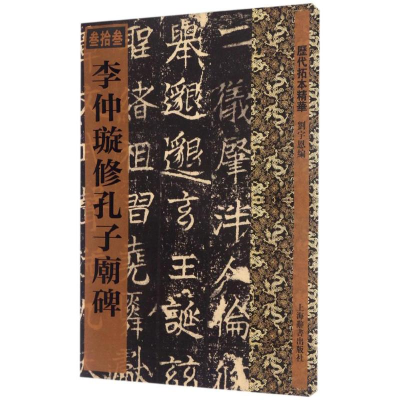 叁拾叁
李仲璇修孔子廟碑
歷代拓本精華
劉宇恩編
上海辭書出版社
二儀肇泮人倫
舉邈邈玄王誕
聖 詛習堯